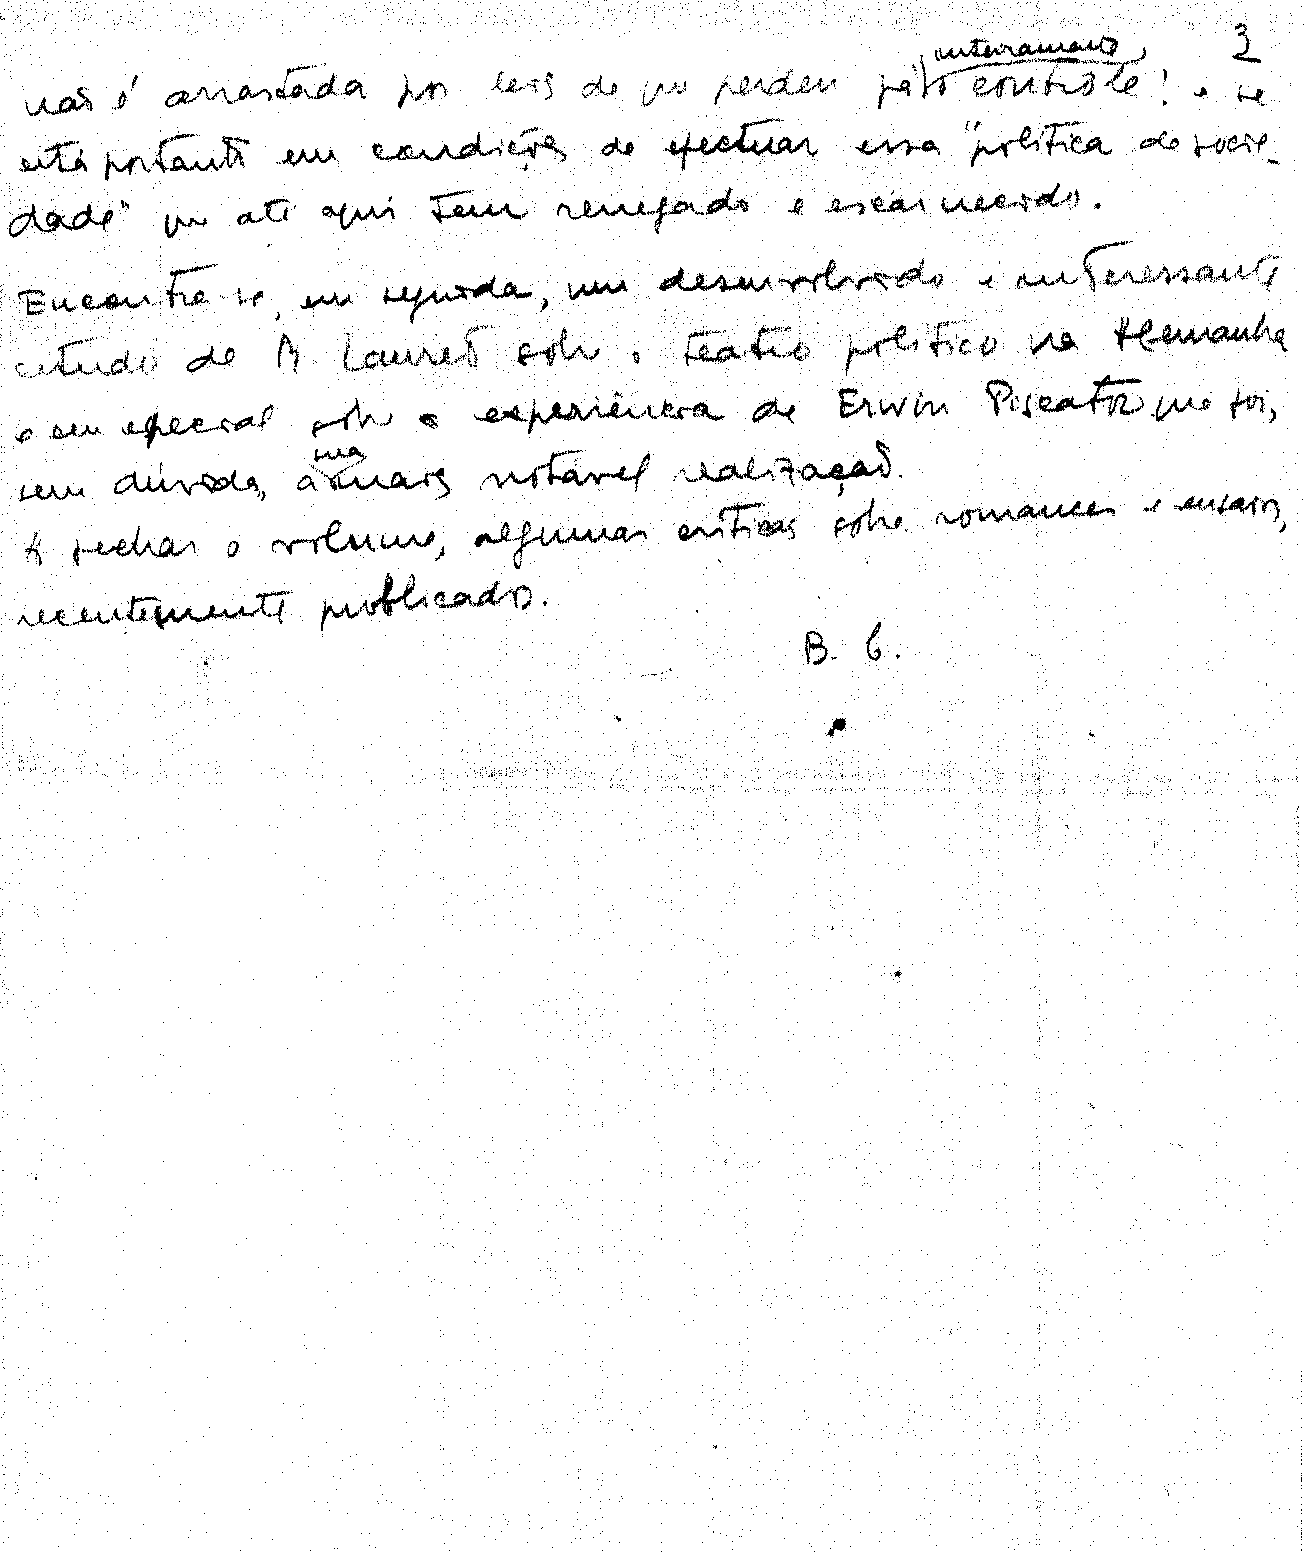 3
não é arrastada por leis de que perdeu já, inteiramente, o contrôle! e se
está portanto em condições de efectuar essa "política de socie-
dade" que até aqui tem renegado e escarnecido.
Encontra-se, em seguida, um desenvolvido e interessante
estudo de A Lauret sobre o teatro político na Alemanha
e em especial sobre a experiência de Erwin Piscator que foi,
sem dúvida, a sua mais notável realização.
A fechar o volume, algumas críticas sobre romances e ensaios,
recentemente publicados.
B. C.